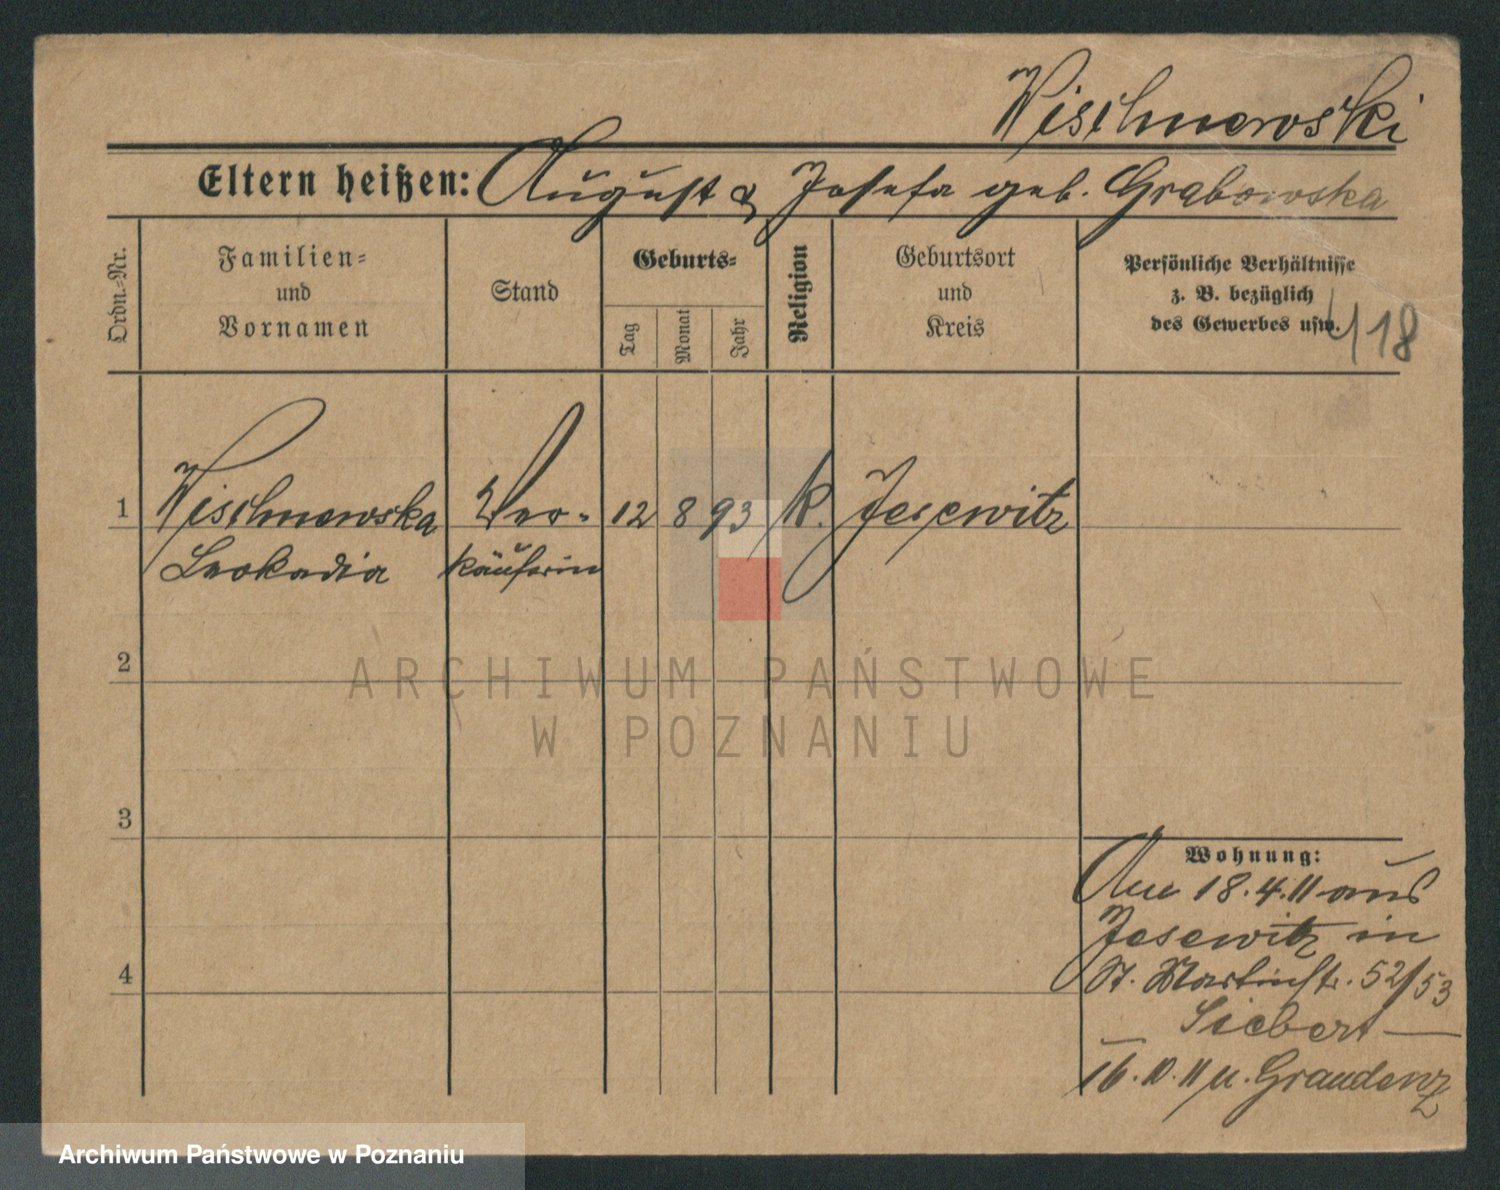 Wischnewski
Eltern heißen: August & Josefa geb. Grabowska
Ordn.-Nr.
Familien- und Vornamen
Stand
Geburts-
Tag
Monat
Jahr
Religion
Geburtsort und Kreis
Persönliche Verhältnisse
z. B. bezüglich
des Gewerbes usw.
118
1 Wischnewska Ver- 12 8 93 k. Jesewitz
Leokadia käuferin
2
3
4
Wohnung:
Am 18.4.11 aus
Jesewitz in
St. Martinstr. 52/53
Siebert —
16.10.11 n. Graudenz
ARCHIWUM PAŃSTWOWE
W POZNANIU
Archiwum Państwowe w Poznaniu